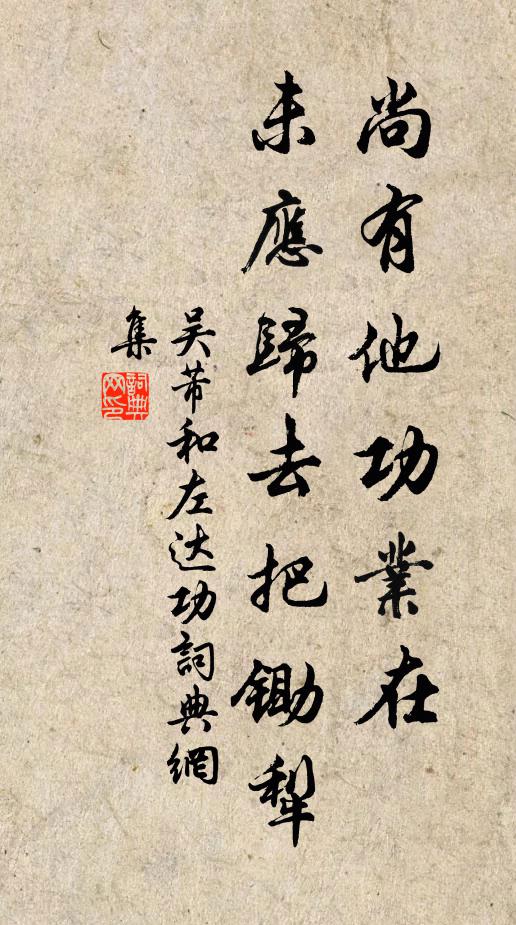 尚有他功業在
未應歸去把鋤犁
吴芾和左达功詞典網
集
詞典网印